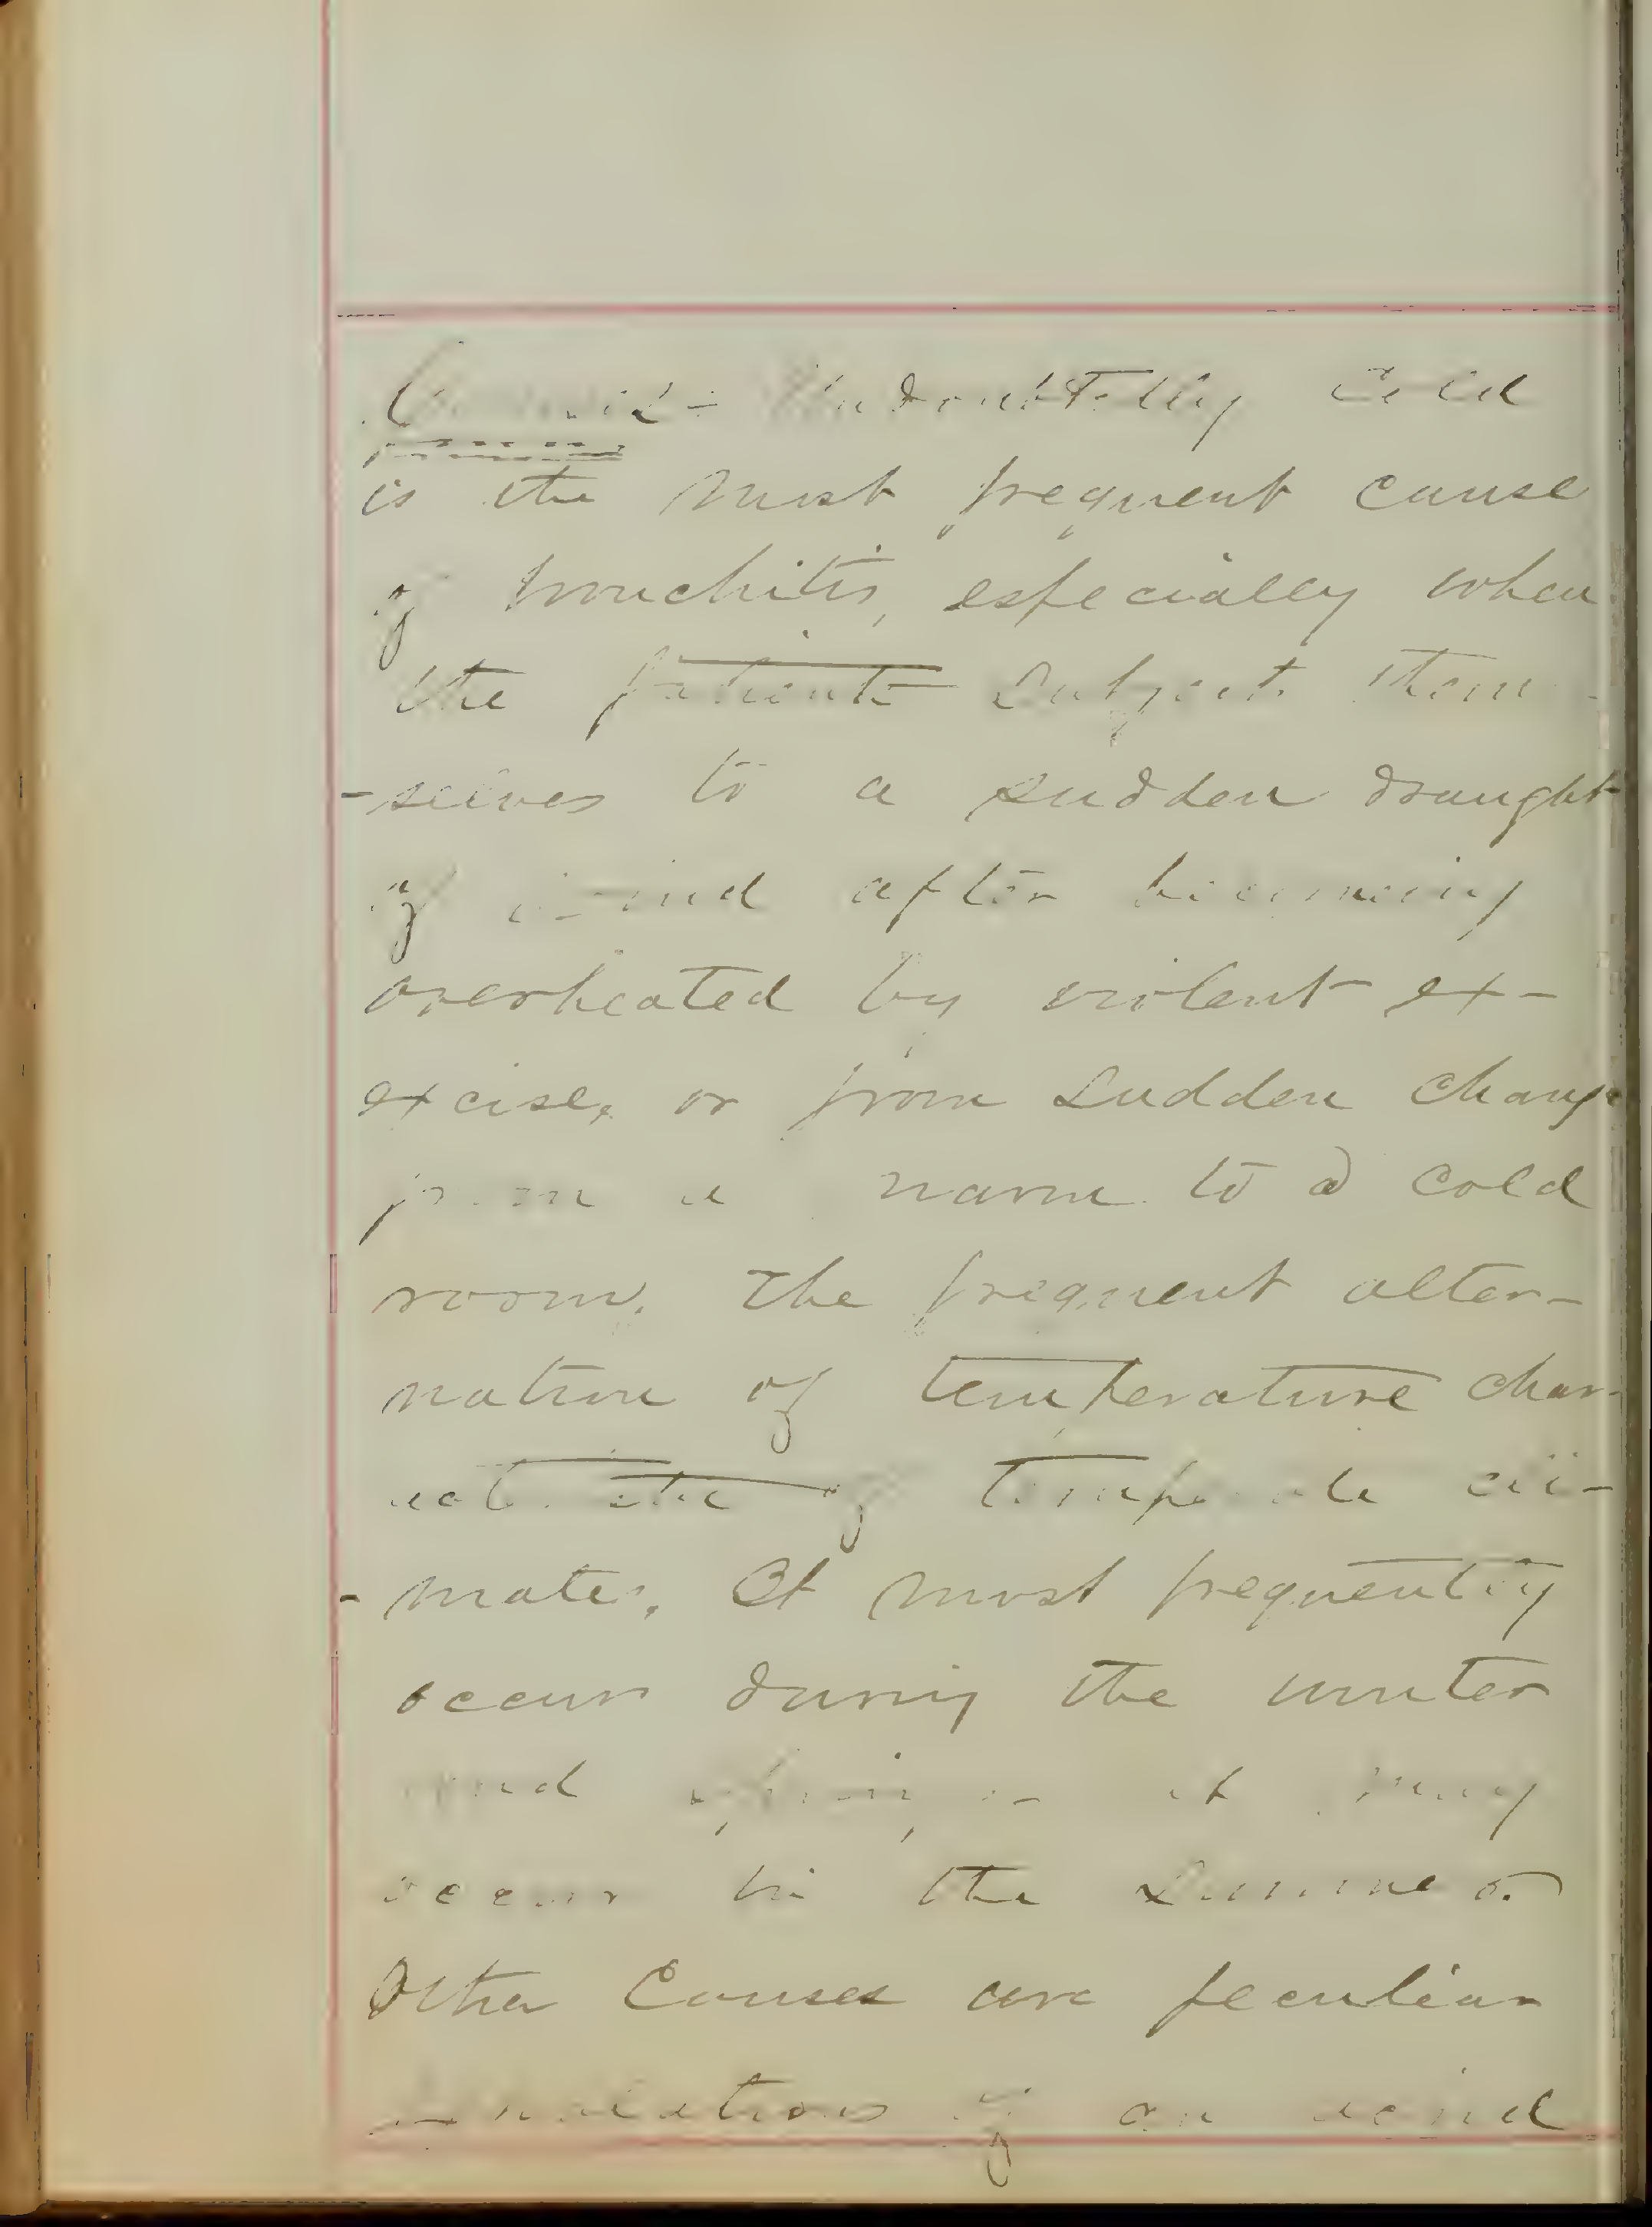 Undoubtedly Cold
is the most frequent cause
of bronchitis, especially when
the patients subject them-
-selves to a sudden draught
of wind after becoming
overheated by violent ex-
excise, or from sudden change
from a warm to a cold
room. The frequent alter-
nation of temperature char-
acteristic of temperate cli-
-mates. It most frequently
occurs during the winter
and spring, or it may
occur in the summer.
Other Causes are peculiar
inhalations of an acrid